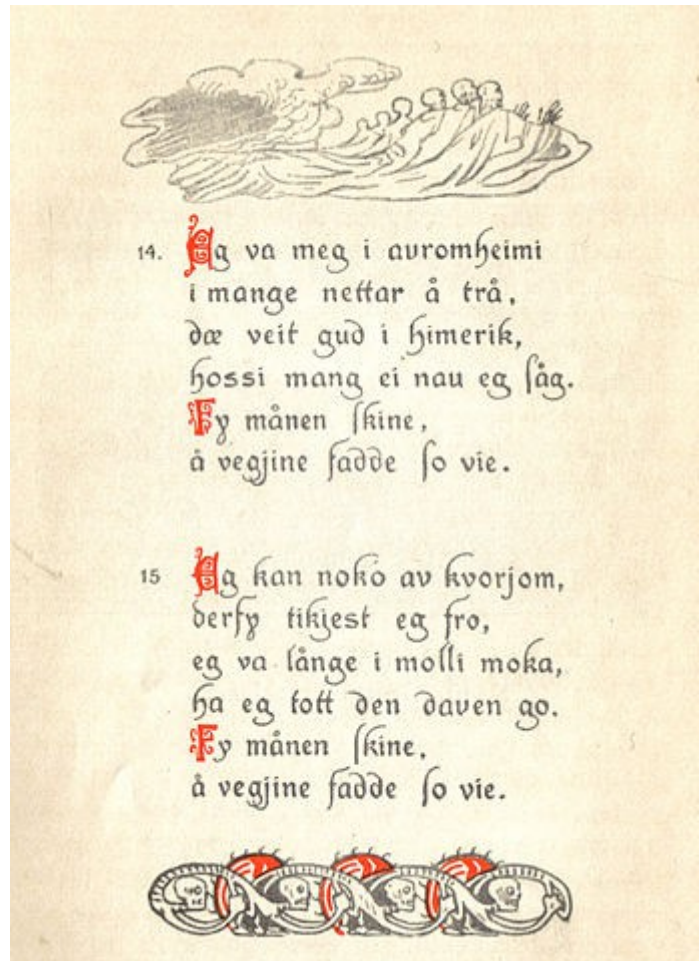 14. Eg va meg i auromheimi
i mange nettar å trå,
dæ veit gud i himerik,
hossi mang ei nau eg ſåg.
Fy månen ſkine,
å vegjine fadde ſo vie.
15 Eg kan noko av kvorjom,
derfy tikjest eg fro,
eg va långe i molli moka,
ha eg tott den daven go.
Fy månen ſkine,
å vegjine fadde ſo vie.